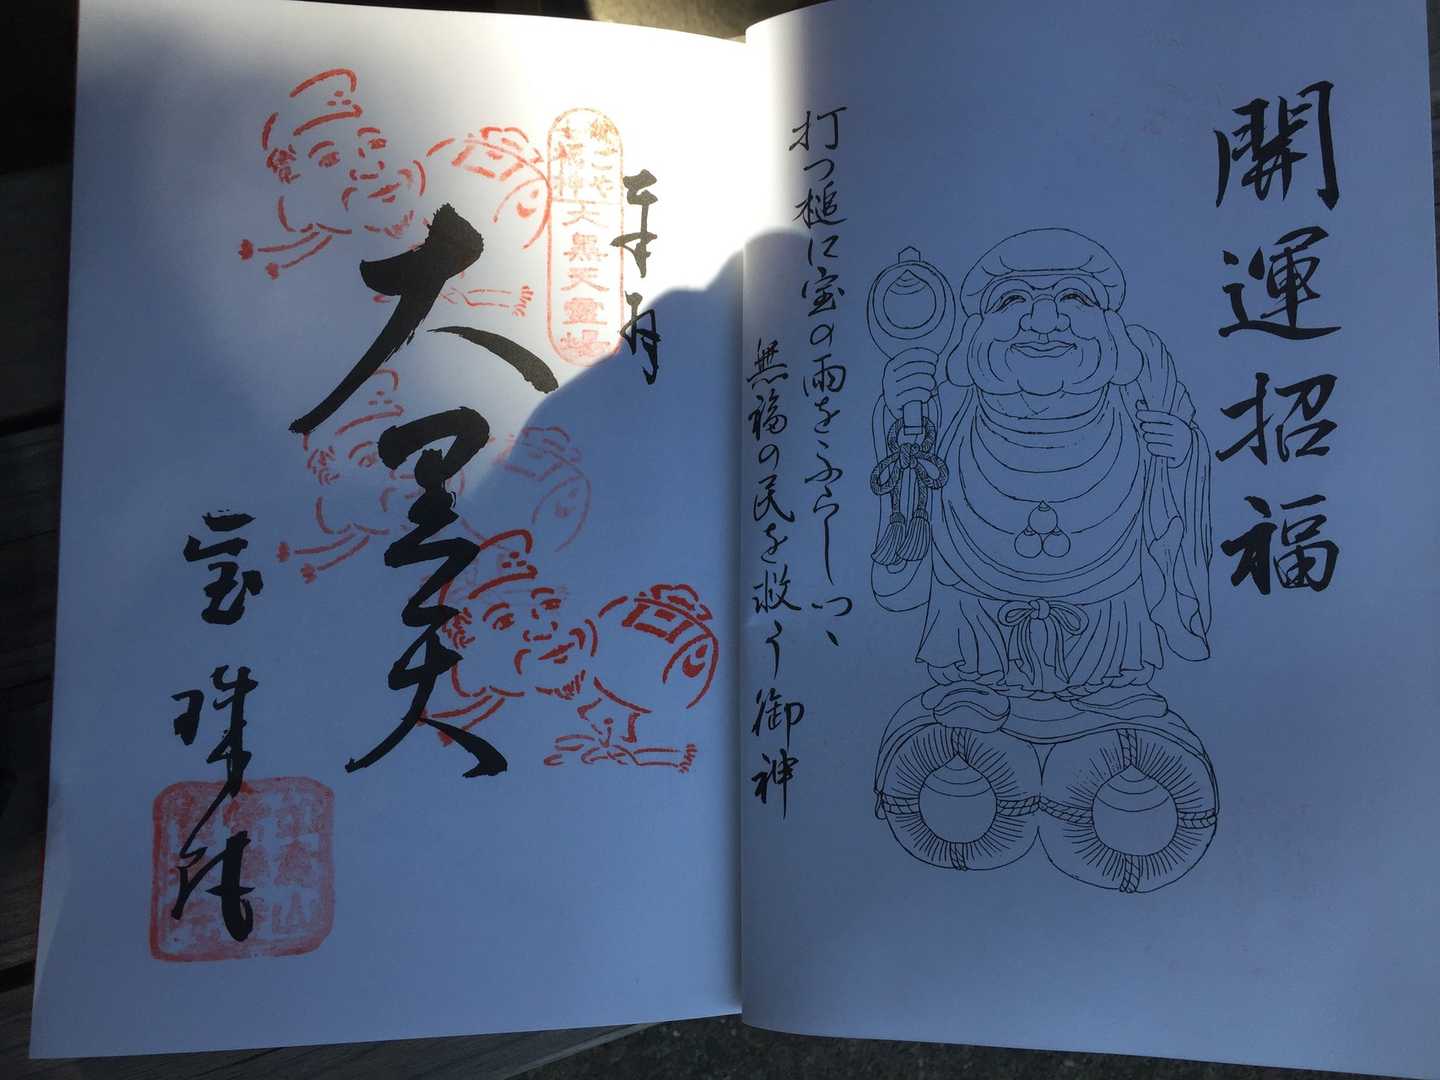 開運招福
打つ槌に宝の雨をふらしつゝ
無福の民を救う御神
なごや
七福神
大黒天霊場
大黒天
宝珠院